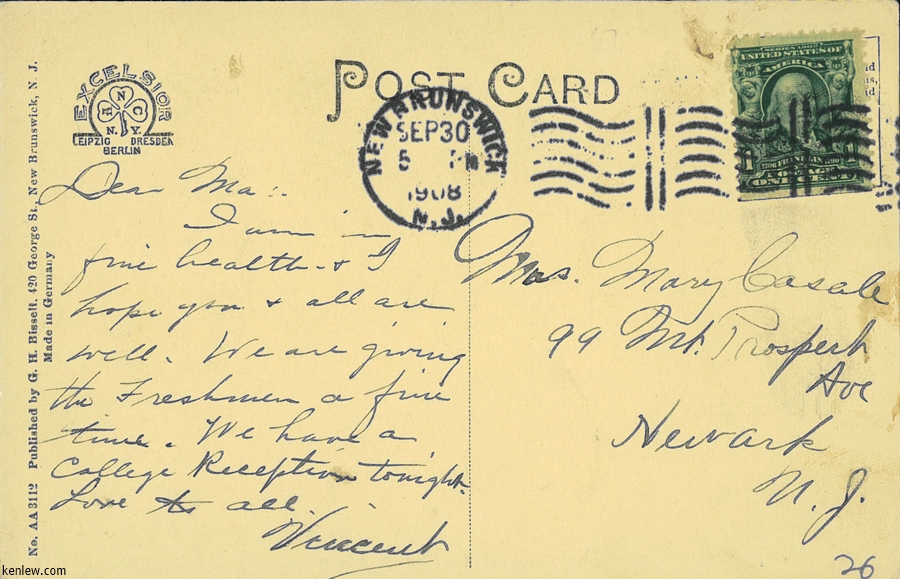 No. AA3112 Published by G. H. Bissett, 420 George St., New Brunswick, N. J.
Made in Germany
EXCELSIOR
N. Y.
LEIPZIG DRESDEN
BERLIN
POST CARD
NEW BRUNSWICK
SEP 30
5 PM
1908
N.J.
SERIES 1902
UNITED STATES OF
AMERICA
FRANKLIN
Dear Ma..
I am in
fine health & I
hope you & all are
well. We are giving
the Freshmen a fine
time. We have a
College Reception tonight.
Love to all.
Vincent
Mrs. Mary Casale
99 Mt. Prospect
Ave
Newark
N. J.
26
kenlew.com